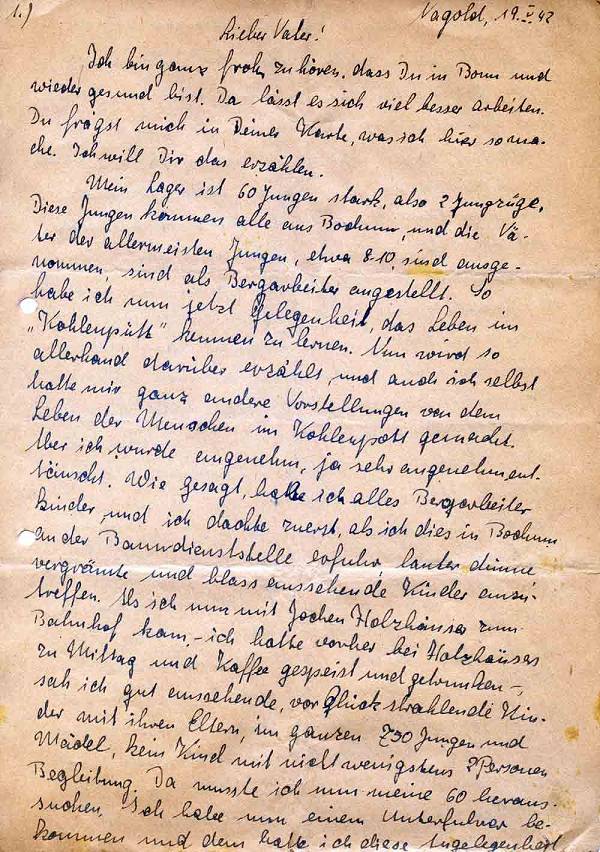 1.)
Nagold, 19. V. 42
Lieber Vater!
Ich bin ganz froh zu hören, dass Du in Bonn und
wieder gesund bist. Da lässt es sich viel besser arbeiten.
Du frägst mich in Deiner Karte, was ich hier so ma-
che. Ich will Dir das erzählen.
Mein Lager ist 60 Jungen stark, also 2 Jungzüge.
Diese Jungen kommen alle aus Bochum, und die Vä-
ter der allermeisten Jungen, etwa 8-10 sind ausge-
nommen, sind als Bergarbeiter angestellt. So
habe ich nun jetzt Gelegenheit, das Leben im
„Kohlenpütt" kennen zu lernen. Nun wird so
allerhand darüber erzählt, und auch ich selbst
hatte mir ganz andere Vorstellungen von dem
Leben der Menschen im Kohlenpott gemacht.
Aber ich wurde angenehm, ja sehr angenehm ent-
täuscht. Wie gesagt, habe ich alles Bergarbeiter
kinder, und ich dachte zuerst, als ich dies in Bochum
an der Banndienststelle erfuhr, lauter dünne
vergrämte und blass aussehende Kinder anzu-
treffen. Als ich nun mit Jochen Holzhäuser zum
Bahnhof kam, – ich hatte vorher bei Holzhäusers
zu Mittag und Kaffee gespeist und getrunken –,
sah ich gut aussehende, vor Glück strahlende Kin-
der mit ihren Eltern, im ganzen 750 Jungen und
Mädel, kein Kind mit nicht wenigstens 2 Personen
Begleitung. Da musste ich nun meine 60 heraus-
suchen. Ich habe nun einem Unterführer be-
kommen und dem hatte ich diese Angelegenheit